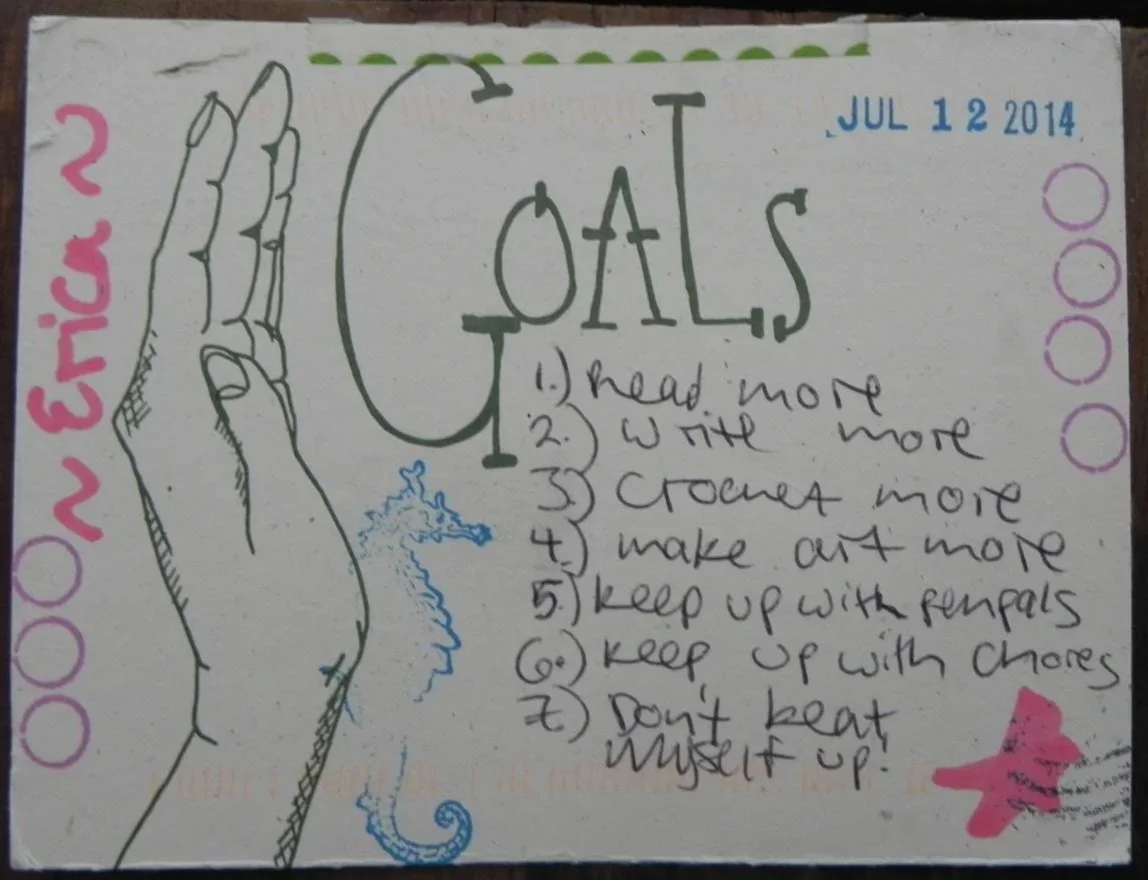 GOALS
JUL 12 2014
~ Erica ~
1.) Read more
2.) write more
3.) Crochet more
4.) make art more
5.) keep up with penpals
6.) keep up with chores
7.) Don't beat
myself up!